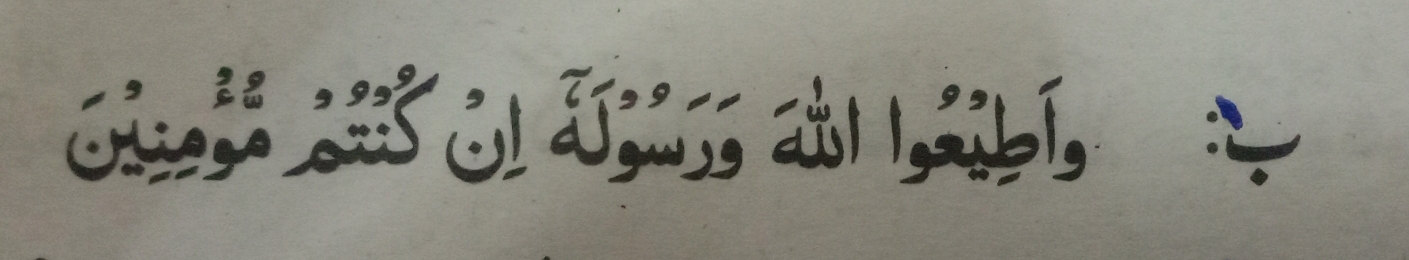 ب: واَطِيْعُوا اللّٰهَ وَرَسُوْلَهٗٓ اِنْ كُنْتُمْ مُّؤْمِنِيْنَ